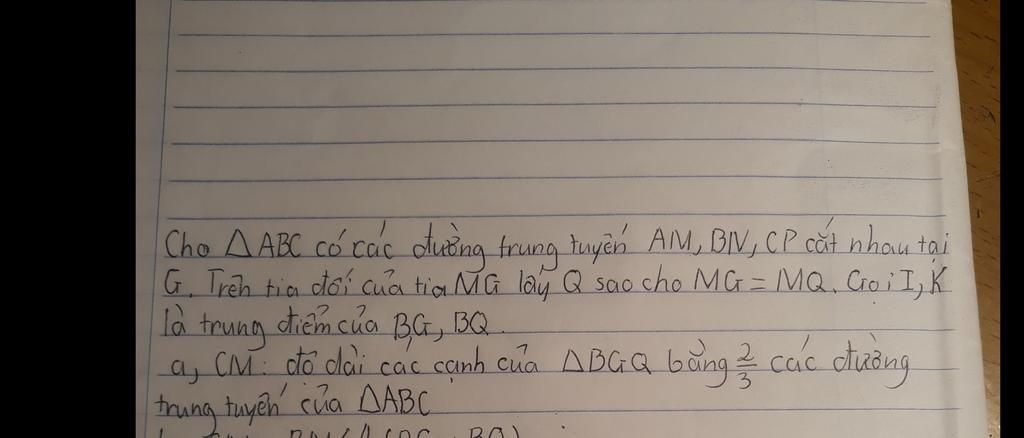 Cho △ABC có các đường trung tuyến AM, BN, CP cắt nhau tại
G. Trên tia đối của tia MG lấy Q sao cho MG = MQ. Gọi I, K
là trung điểm của BG, BQ.
a, CM: độ dài các cạnh của △BGQ bằng 2/3 các đường
trung tuyến của △ABC